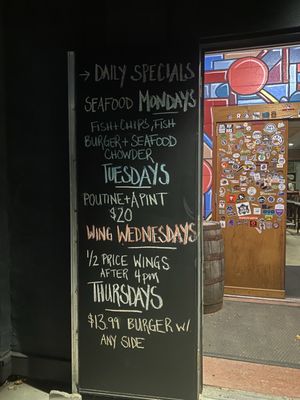 → DAILY SPECIALS
SEAFOOD MONDAYS
FISH + CHIPS, FISH
BURGER + SEAFOOD
CHOWDER
TUESDAYS
POUTINE + A PINT
$20
WING WEDNESDAYS
1/2 PRICE WINGS
AFTER 4pm
THURSDAYS
$13.99 BURGER W/
ANY SIDE